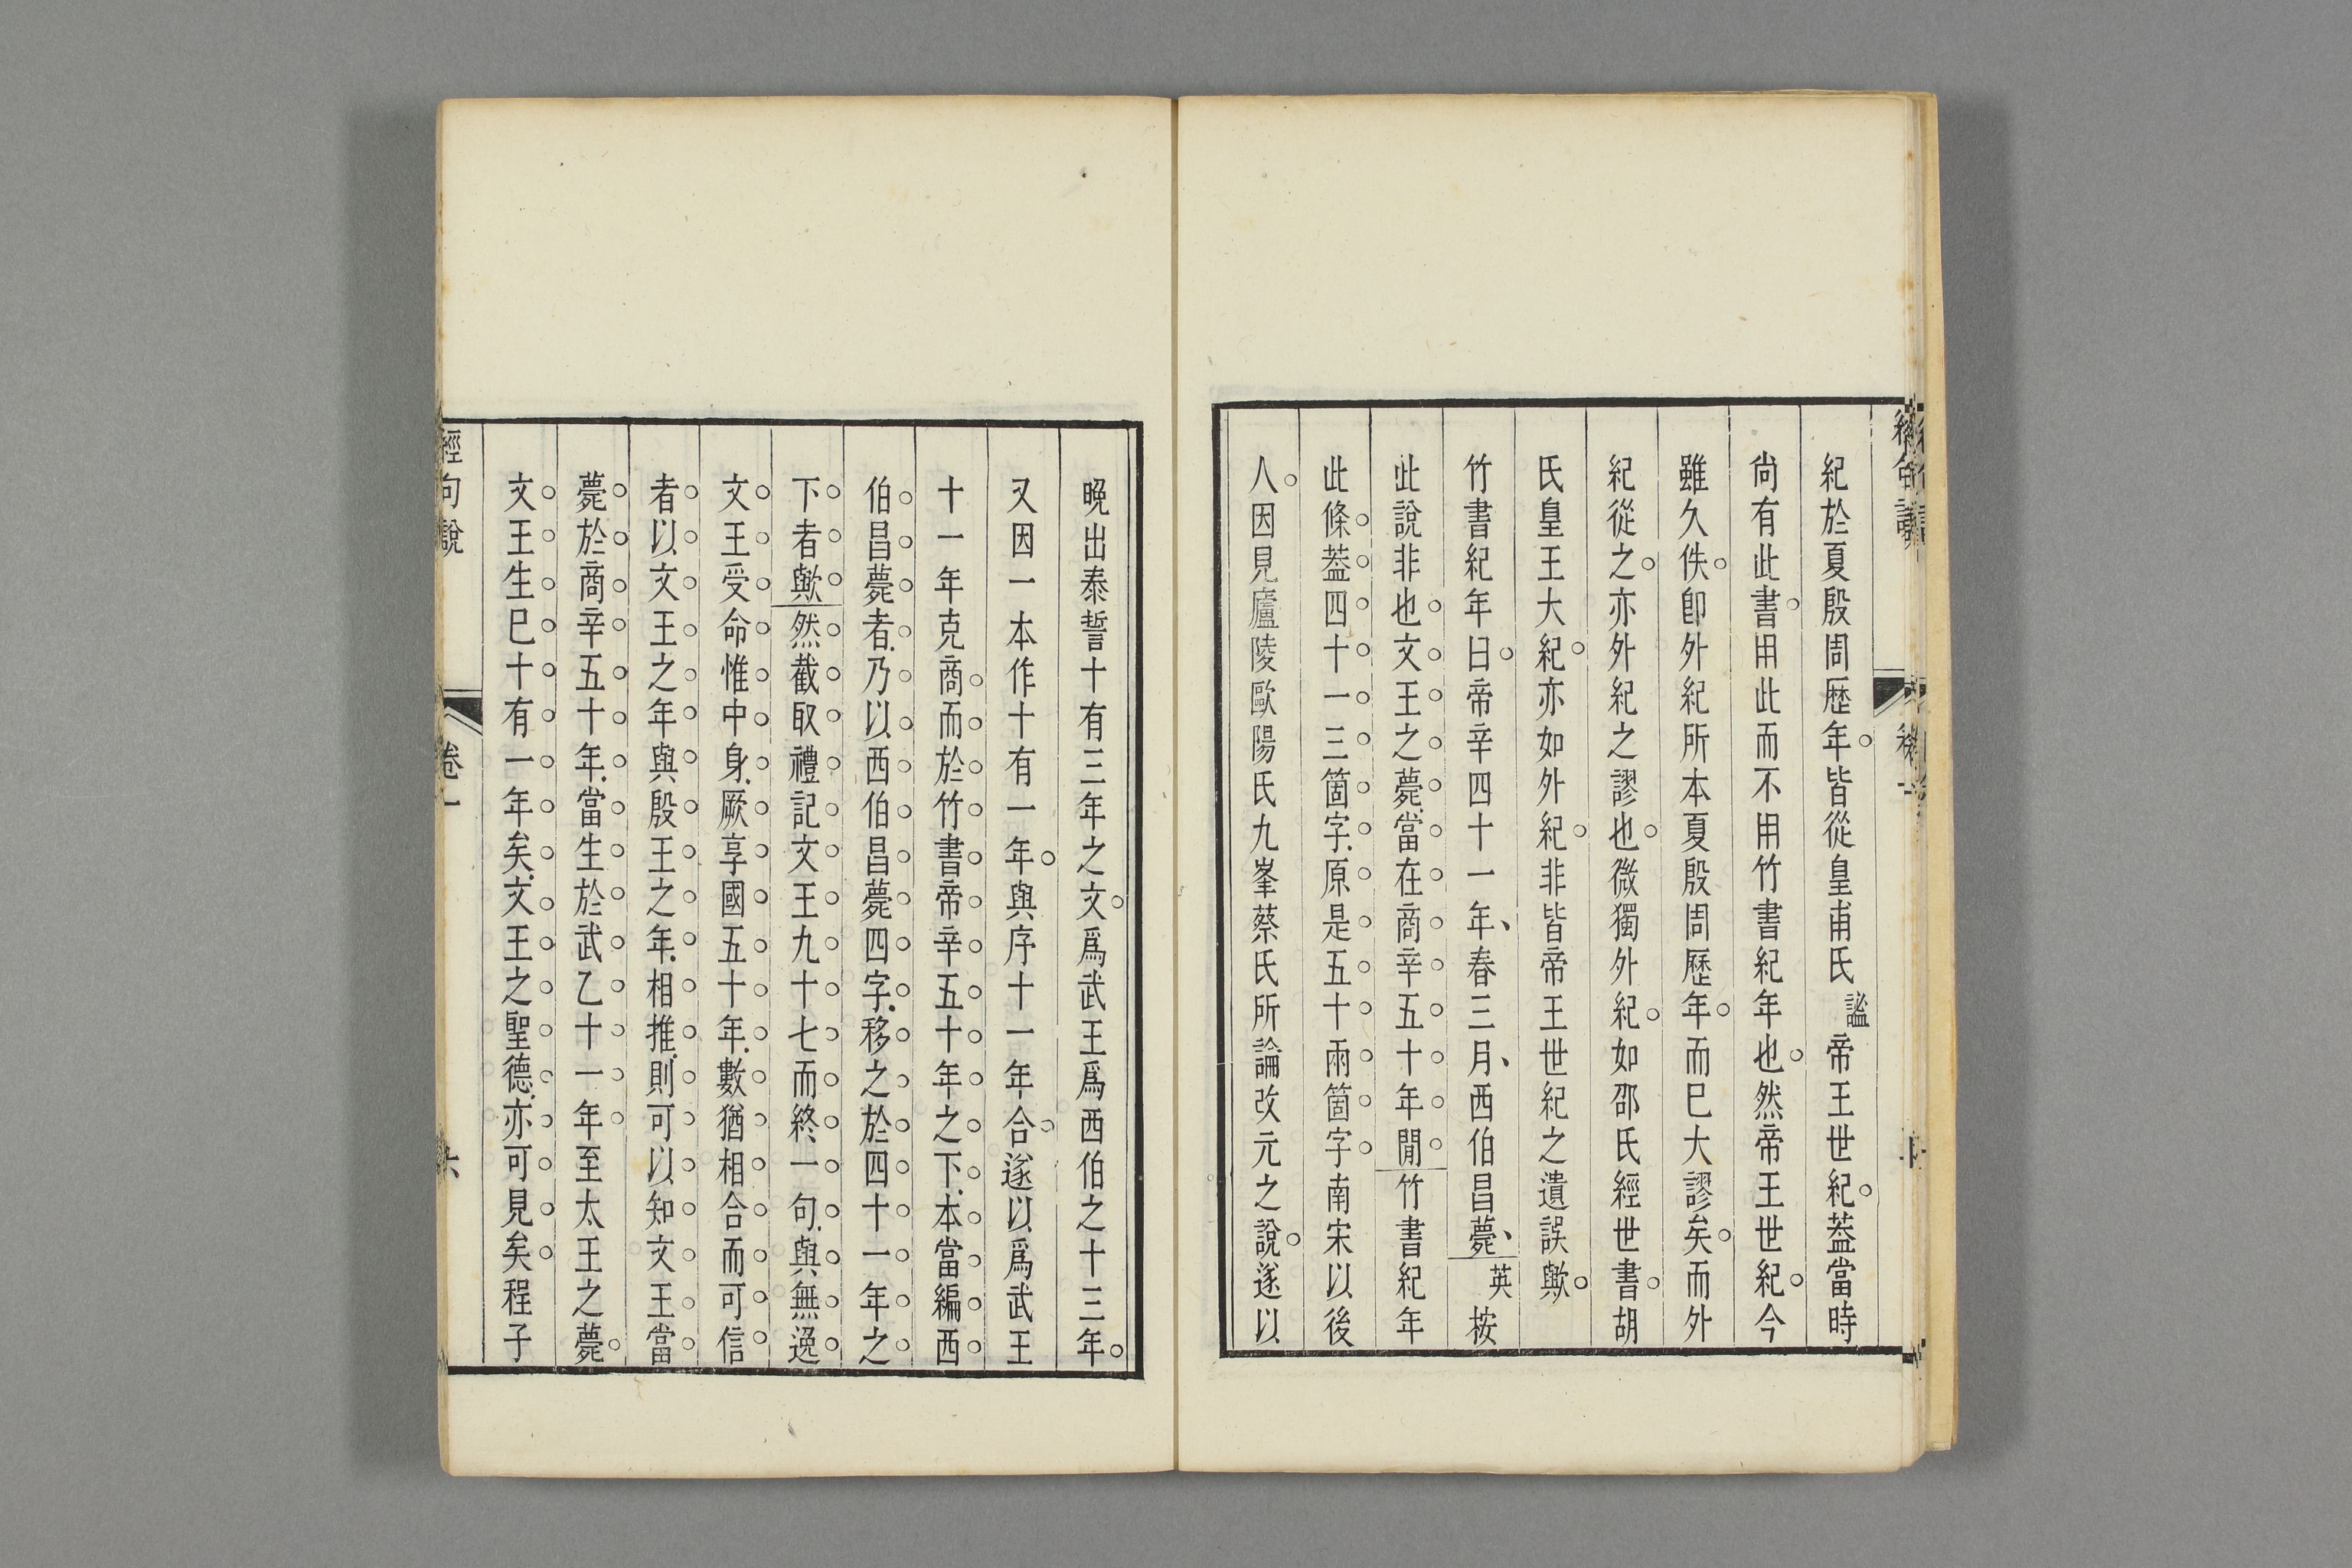 紀於夏殷周歷年皆從皇甫氏謐帝王世紀葢當時
尙有此書用此而不用竹書紀年也然帝王世紀今
雖久佚卽外紀所本夏殷周歷年而巳大謬矣而外
紀從之亦外紀之謬也微獨外紀如邵氏經世書胡
氏皇王大紀亦如外紀非皆帝王世紀之遺誤歟
竹書紀年曰帝辛四十一年春三月西伯昌薨英桉
此說非也文王之薨當在商辛五十年閒竹書紀年
此條葢四十一三箇字原是五十兩箇字南宋以後
人因見廬陵歐陽氏九峯蔡氏所論改元之說遂以
晚出泰誓十有三年之文爲武王爲西伯之十三年
又因一本作十有一年與序十一年合遂以爲武王
十一年克商而於竹書帝辛五十年之下本當編西
伯昌薨者乃以西伯昌薨四字移之於四十一年之
下者歟然截取禮記文王九十七而終一句與無逸
文王受命惟中身厥享國五十年數猶相合而可信
者以文王之年與殷王之年相推則可以知文王當
薨於商辛五十年當生於武乙十一年至太王之薨
文王生巳十有一年矣文王之聖德亦可見矣程子
經句說 卷一 六